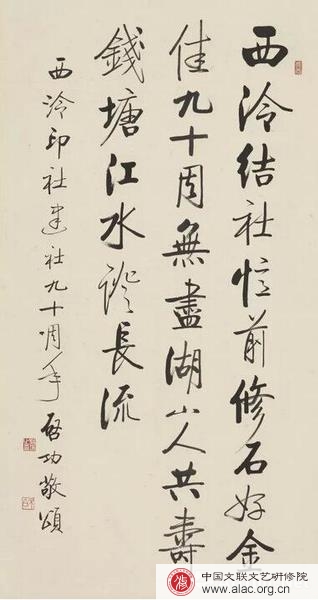 西泠结社忆前修石好金
佳九十周無盡湖山人共壽
錢塘江水證長流
西泠印社建社九十周年 启功敬頌
中国文联文艺研修院
www.alac.org.cn